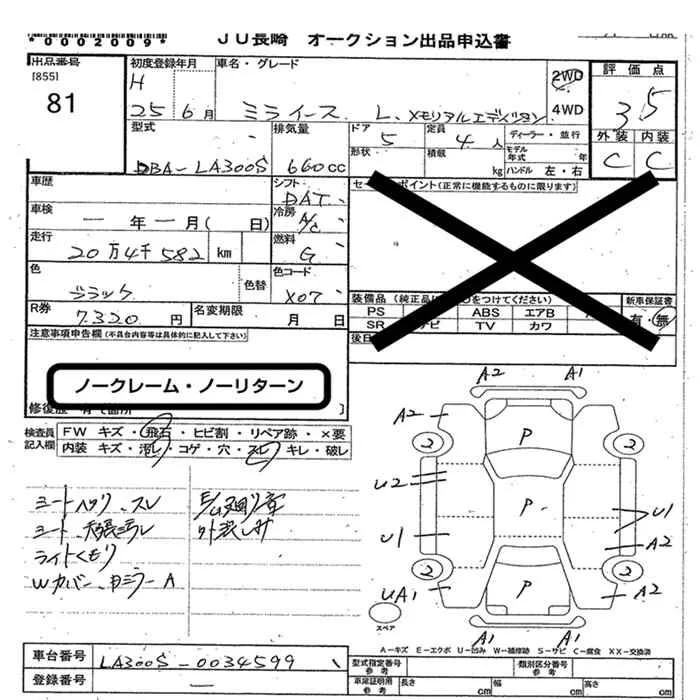 *0002009*
JU長崎 オークション出品申込書
出品番号
[855]
81
初度登録年月
H
25 6月
車名・グレード
ミライース L, メモリアルエディション
2WD
4WD
評価点
3.5
外装 内装
C C
型式
DBA-LA300S
排気量
660cc
ドア 5
形状
定員 4人
積載 kg
ディーラー・並行
モデル年式 年
ハンドル 左・右
車歴
シフト
DAT
車検 一年一月( 日)
冷房
A/C
走行
20万4千582 km
燃料
G
色
ブラック
色替
色コード
X07
R券
7,320円
名変期限
月 日
ポイント(正常に機能するものに限ります)
装備品
PS
SR
ABS
TV
エアB
カワ
新車保証書
有・無
注意事項申告欄(不具合内容等は具体的に記入して下さい)
ノークレーム・ノーリターン
検査員記入欄
FW キズ・飛石・ヒビ割・リペア跡・×要
内装 キズ・汚レ・コゲ・穴・スレ・キレ・破レ
シートヘタリ、スレ
ライトくもり
Wカバー、
A
A2 A1
A2
P
2 2
U2
P
U1
U1
A2
2 2
P
UA1
A2
A1 A1
スペア
A-キズ E-エクボ U-凹み W-補修跡 S-サビ C-腐食 XX-交換済
車台番号
LA300S-0034599
登録番号
一
型式指定番号
参考
類別区分番号
参考
車庫証明用
参考
長さ cm
幅 cm
高さ cm